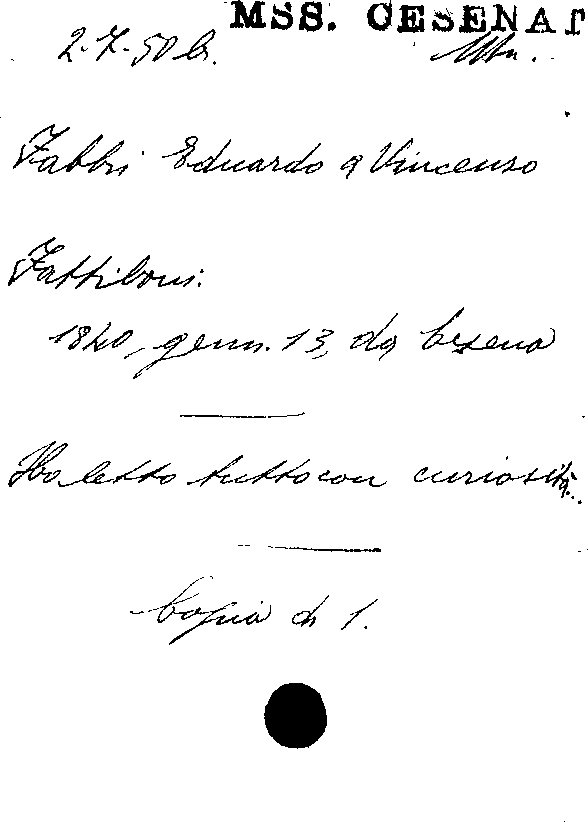 MSS. CESENAT
2-7-50 b.
Fabbri Eduardo a Vincenzo
Fattiboni.
1840, genn. 13, da Cesena
Ho letto tutto con curiosità..
Copia di 1.